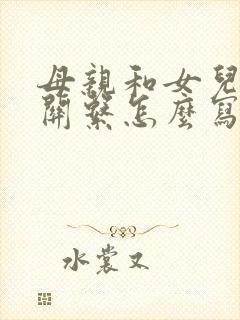 母親和女兒
關繫怎麼寫
水裳又